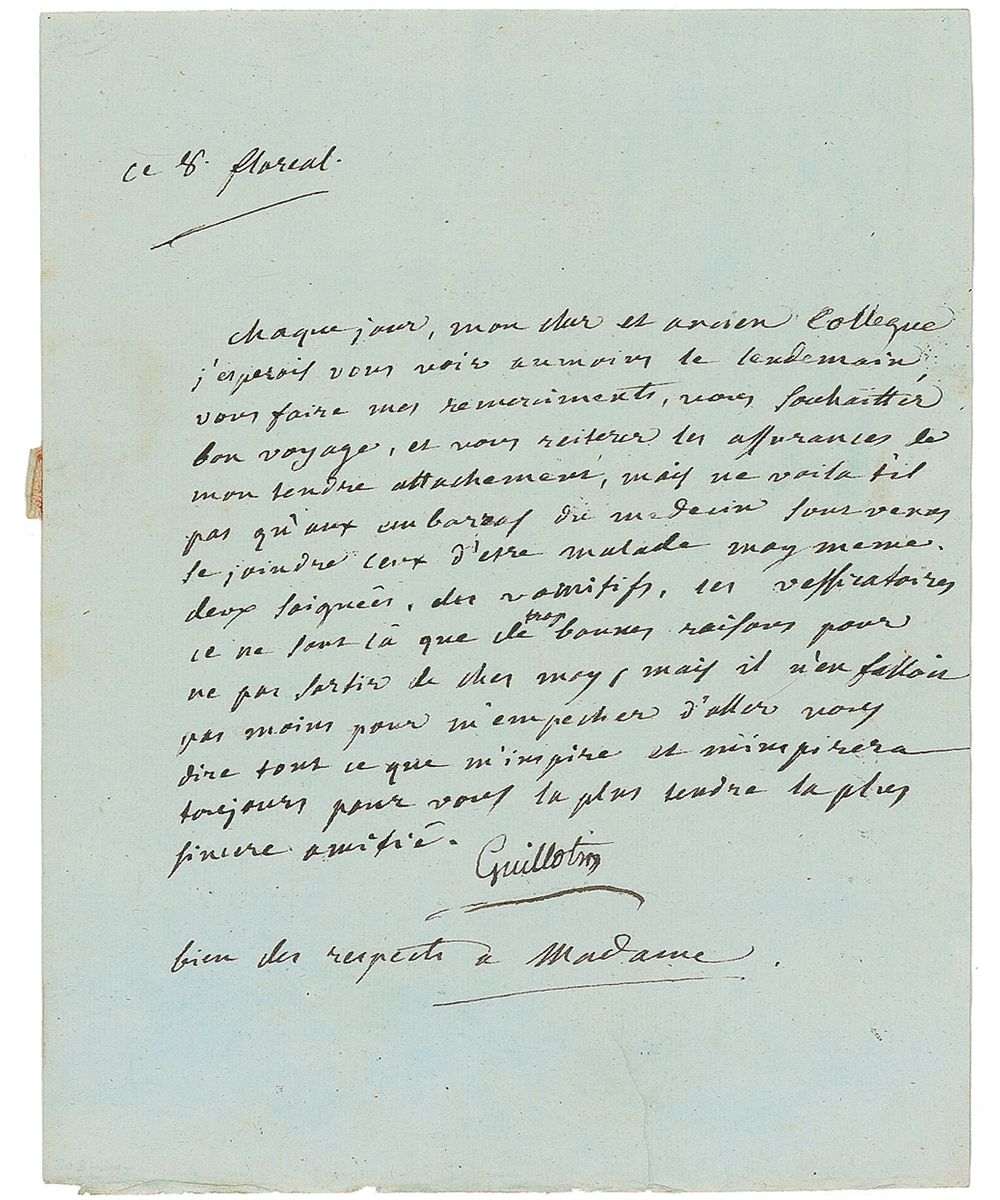 ce 8. floreal.
chaque jour, mon cher et ancien Collegue
j'esperois vous voir aumoins le lendemain,
vous faire mes remerciments, vous souhaitter
bon voyage, et vous reiterer les assurances de
mon tendre attachement, mais ne voila t'il
pas qu'aux embarras du medecin sont venus
se joindre ceux d'etre malade moy meme.
deux saignées, des vomitifs, les vessicatoires
ce ne sont là que de trop bonnes raisons pour
ne pas sortir de chez moy, mais il n'en falloit
pas moins pour m'empecher d'aller vous
dire tout ce que m'inspire et m'inspirera
toujours pour vous la plus tendre la plus
sincere amitié.
Guillotin
bien des respects a Madame.